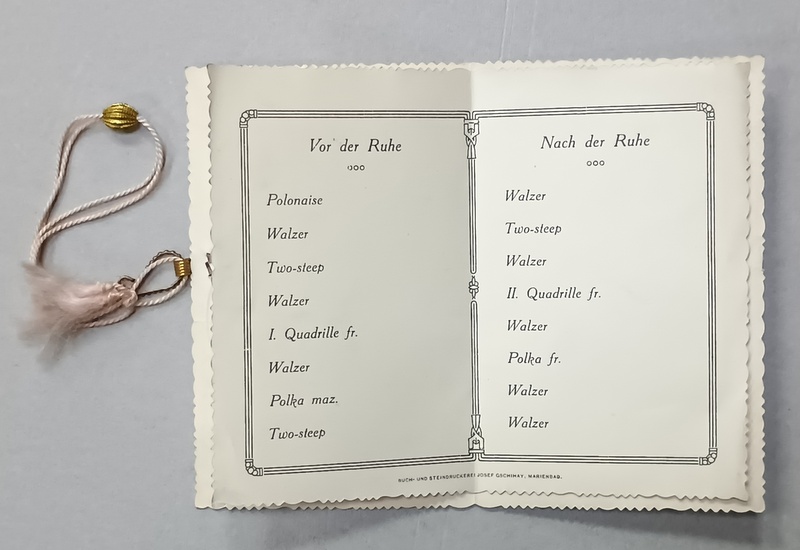 Vor der Ruhe
Polonaise
Walzer
Two-steep
Walzer
I. Quadrille fr.
Walzer
Polka maz.
Two-steep
Nach der Ruhe
Walzer
Two-steep
Walzer
II. Quadrille fr.
Walzer
Polka fr.
Walzer
Walzer
BUCH- UND STEINDRUCKEREI JOSEF GSCHIHAY, MARIENBAD.